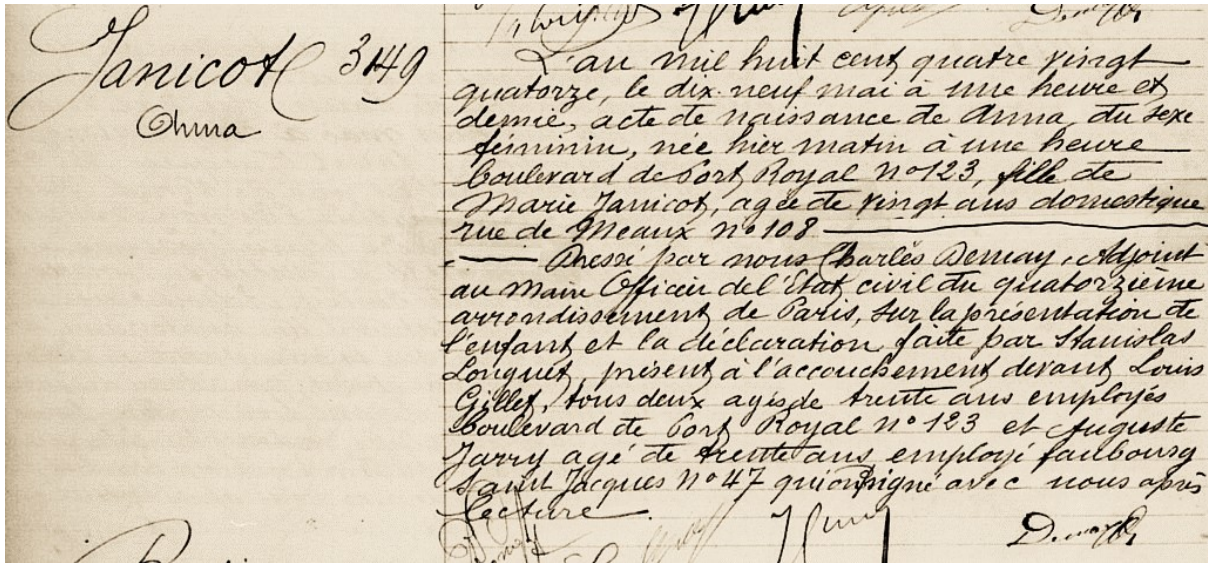 Janicot 3149
Anna
L'an mil huit cent quatre vingt
quatorze, le dix neuf mai à une heure et
demie, acte de naissance de Anna, du sexe
féminin, née hier matin à une heure
boulevard de Port Royal n° 123, fille de
Marie Janicot, agée de vingt ans domestique
rue de Meaux n° 108
Dressé par nous Charles Demay, Adjoint
au Maire Officier de l'État civil du quatorzième
arrondissement de Paris, sur la présentation de
l'enfant et la déclaration faite par Stanislas
Longuet, présent à l'accouchement devant Louis
Gillet, tous deux agés de trente ans employés
boulevard de Port Royal n° 123 et Auguste
Jarry agé de trente ans employé faubourg
Saint Jacques n° 47 qui ont signé avec nous après
lecture.